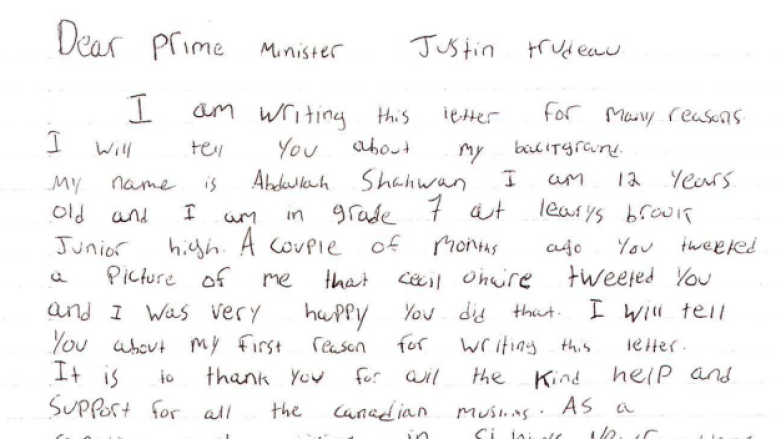 Dear Prime Minister Justin trudeau
I am writing this letter for many reasons.
I will tell you about my background.
My name is Abdullah Shahwan I am 12 years
old and I am in grade 7 at learys brook
Junior high. A couple of months ago you tweeted
a picture of me that cecil ohaire tweeted you
and I was very happy you did that. I will tell
you about my first reason for writing this letter.
It is to thank you for all the kind help and
support for all the Canadian muslims. As a
in